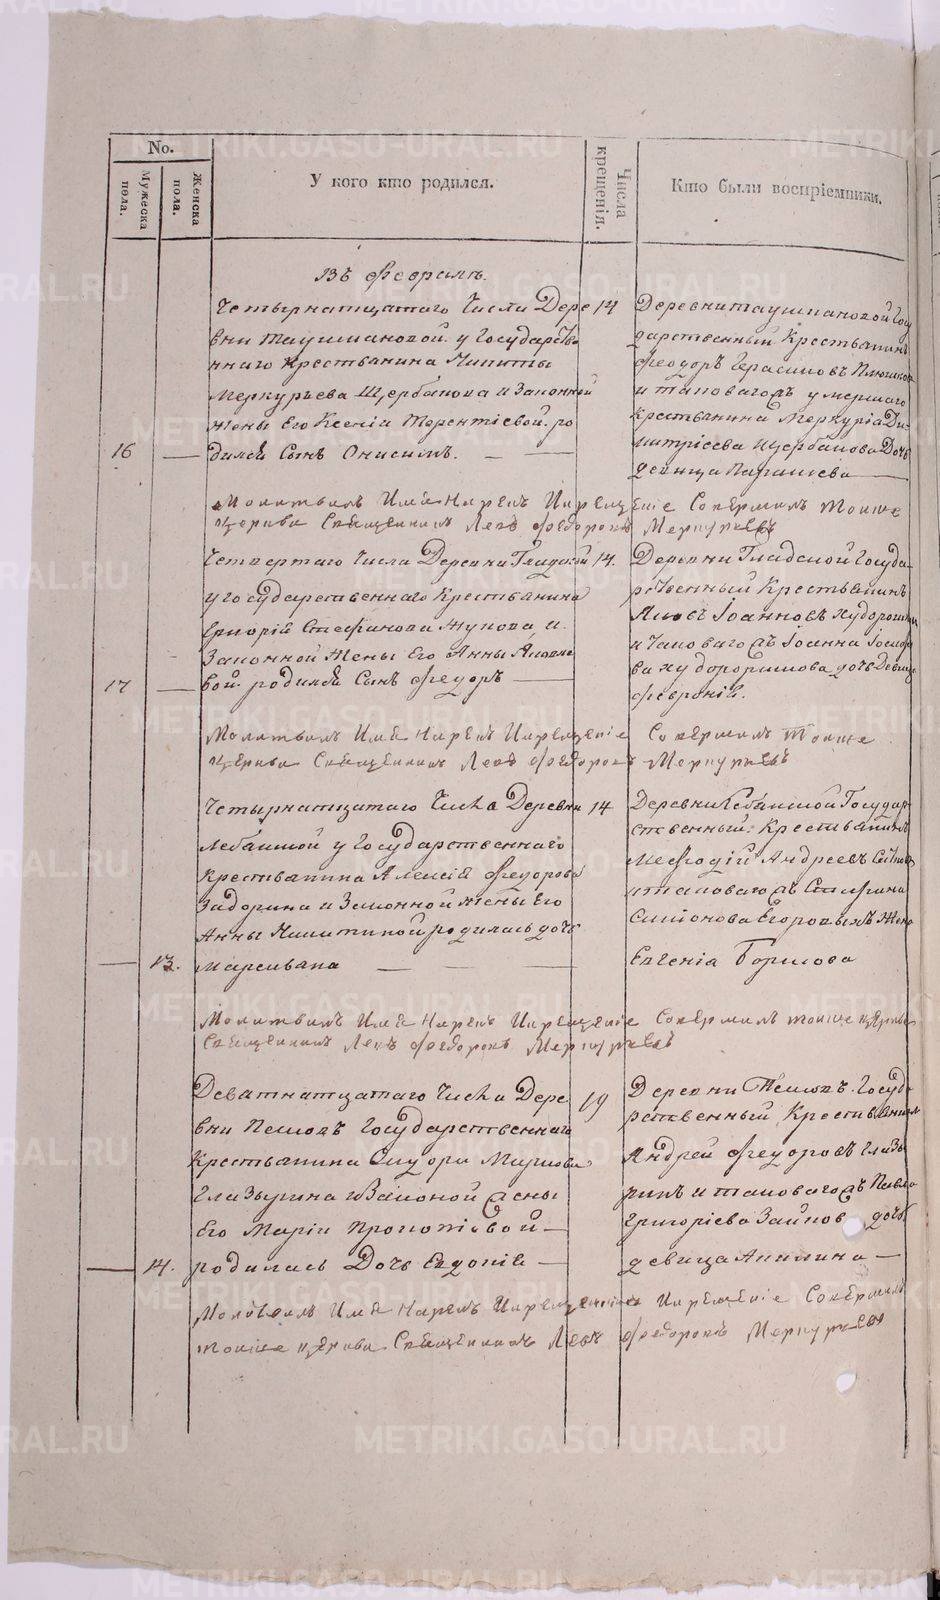 No.
Мужеска пола.
Женска пола.
У кого кто родился.
Числа крещенія.
Кто были воспріемники.
Въ Февралѣ.
Четырнатцатаго Числа Дере
вни Таушкановой у Государстве
ннаго Крестьянина Никиты
Меркурьева Щербакова и Законной
жены Его Ксеніи Терентіевой ро
16 — дился Сынъ Онисимъ. — —
14
Деревни Таушкановой Госу
дарственный Крестьянинъ
Феодоръ Герасимовъ
и таковагожъ умершаго
Крестьянина Меркурія Ди
митріева Щербакова Дочь
девица —
Молитвилъ Имя Нарекъ Икрещеніе Совершилъ Тояже
Церкви Священникъ Левъ Федоровъ Меркурьевъ
Четвертаго Числа Деревни Гладской
у государственнаго Крестьянина
Григорія Стефанова Жукова и
Законной Жены Его Анны Яковле
17 — вой родился Сынъ Федоръ —
14.
Деревни Гладской Госуда-
рственный Крестьянинъ
Яковъ Іоанновъ
и таковагожъ Іоанна
дочь Девица
Февронія.
Молитвилъ Имя Нарекъ Икрещеніе Совершилъ Тояже
Церкви Священникъ Левъ Федоровъ Меркурьевъ
Четырнатцатаго Числа Деревни
у Государственнаго
Крестьянина Алексія Федорова
Задорина и Законной жены Его
Анны Никитиной родилась дочь
— 13. — — —
14
Деревни Государ
ственный Крестьянинъ
Мефодій Андреевъ
и таковагожъ Стефана
Симонова Егоровыхъ Жена
Евгенія Борисова
Молитвилъ Имя Нарекъ Икрещеніе Совершилъ тояже церкви
Священникъ Левъ Федоровъ Меркурьевъ
Деватнатцатаго Числа Дере
вни Государственнаго
Крестьянина Сидора Маркова
Глазырина и Законой жены
Его Маріи Прокопіевой —
— 14. родилась Дочь Евдокія —
19
Деревни Госуда
рственный Крестьянинъ
Андрей Федоровъ Глазы
ринъ и таковагожъ Павла
Григоріева дочь
девица Акилина —
Молитвилъ Имя Нарекъ Икрещеніе Совершилъ
тояже церкви Священникъ Левъ Федоровъ Меркурьевъ
METRIKI.GASO-URAL.RU